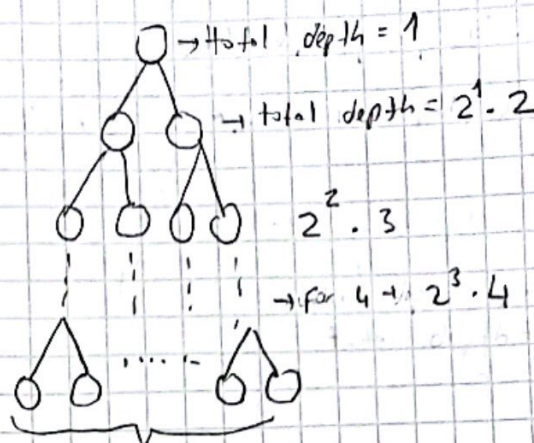 → total depth = 1
→ total depth = 2¹ · 2
2² · 3
→ for 4 → 2³ · 4